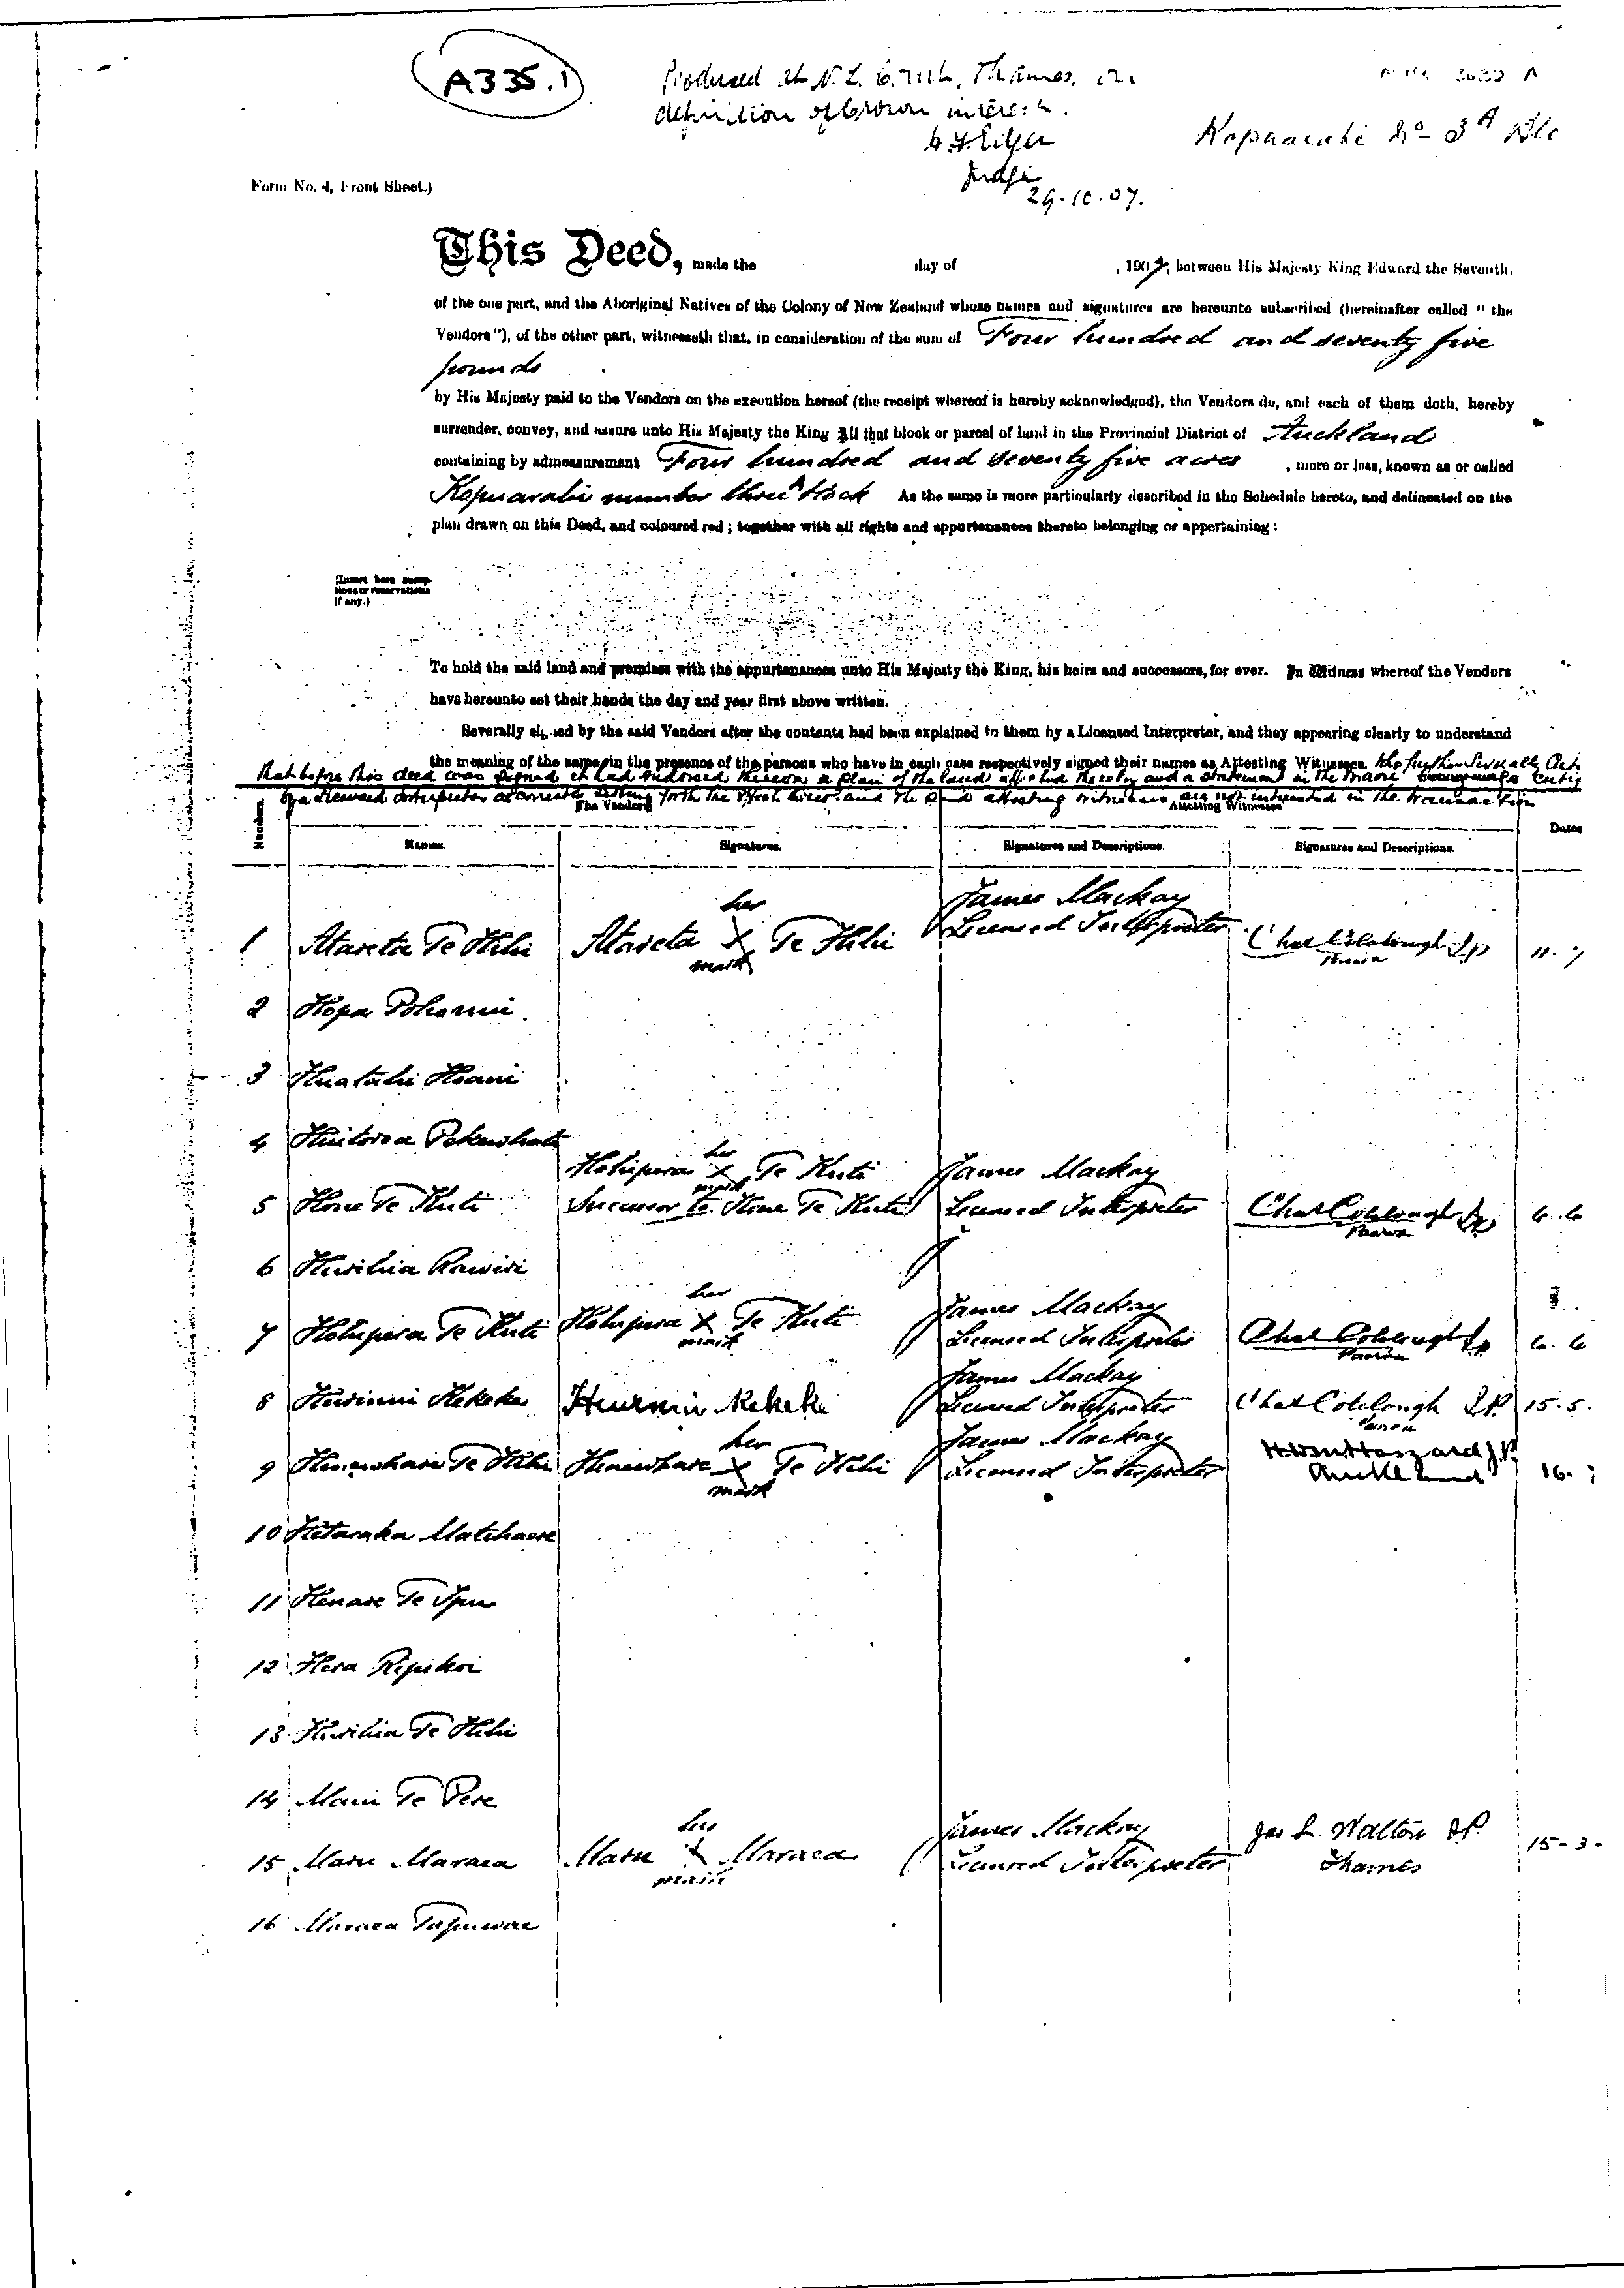 A335.1
Produced at N. L. Court, Thames, on
definition of Crown interest.
Judge
29.10.07.
No 3A
Form No. 4, Front Sheet.)
This Deed, made the day of , 1907, between His Majesty King Edward the Seventh,
of the one part, and the Aboriginal Natives of the Colony of New Zealand whose names and signatures are hereunto subscribed (hereinafter called "the
Vendors"), of the other part, witnesseth that, in consideration of the sum of Four hundred and seventy five
pounds
by His Majesty paid to the Vendors on the execution hereof (the receipt whereof is hereby acknowledged), the Vendors do, and each of them doth, hereby
surrender, convey, and assure unto His Majesty the King All that block or parcel of land in the Provincial District of Auckland
containing by admeasurement Four hundred and seventy five acres , more or less, known as or called
Kopuarahi number three A block As the same is more particularly described in the Schedule hereto, and delineated on the
plan drawn on this Deed, and coloured red; together with all rights and appurtenances thereto belonging or appertaining:
(Insert here excep-
tions or reservations
if any.)
To hold the said land and premises with the appurtenances unto His Majesty the King, his heirs and successors, for ever. In Witness whereof the Vendors
have hereunto set their hands the day and year first above written.
Severally signed by the said Vendors after the contents had been explained to them by a Licensed Interpreter, and they appearing clearly to understand
the meaning of the same, in the presence of the persons who have in each case respectively signed their names as Attesting Witnesses who further severally
that before this deed was signed it had endorsed thereon a plan of the land and a statement in the Maori
by a Licensed Interpreter setting forth the and the said attesting witnesses are not interested in the transaction
The Vendors Attesting Witnesses
Numbers Names. Signatures. Signatures and Descriptions. Signatures and Descriptions. Dates
her James Mackay
1 Atareta Te Hihi Atareta X Te Hihi Licensed Interpreter Chas Colclough JP 11.
mark Paeroa
2 Hopa
3 Huatahi Hoani
4
her
Hohipera X Te Huti James Mackay
mark
5 Hone Te Huti Successor to Hone Te Huti Licensed Interpreter Chas Colclough JP
Paeroa
6 Hurihia Rawiri
her James Mackay
7 Hohipera Te Huti Hohipera X Te Huti Licensed Interpreter Chas Colclough JP
mark Paeroa
James Mackay
8 Hurinui Kekeke Hurinui Kekeke Licensed Interpreter Chas Colclough J.P. 15.5.
Paeroa
her James Mackay
9 Hinewhare Te Hihi Hinewhare X Te Hihi Licensed Interpreter
mark Auckland 16.
10 Hetaraka Matehaere
11 Henare Te Ipu
12 Hera Ripikoi
13 Hurihia Te Hihi
14 Te Pere
James Mackay Jas L. Walton J.P.
15 Maru Maraea Maru X Maraea Licensed Interpreter Thames 15-3-
mark
16 Maraea Tapuwae